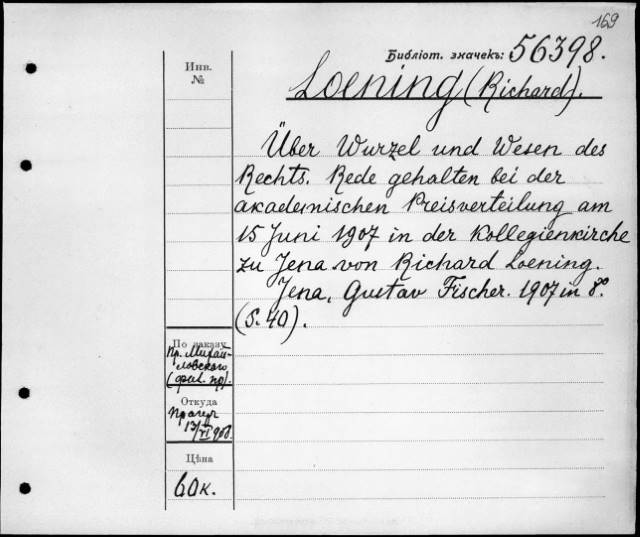 169
Библіот. значекъ: 56398.
Инв.
№
Loening (Richard).
Über Wurzel und Wesen des
Rechts. Rede gehalten bei der
akademischen Preisverteilung am
15 Juni 1907 in der Kollegienkirche
zu Jena von Richard Loening.
Jena, Gustav Fischer. 1907 in 8º
(S. 40).
По заказу
Пр. Михай-
ловскаго
(фил. пр).
Откуда
13/VI 908.
Цѣна
60 к.